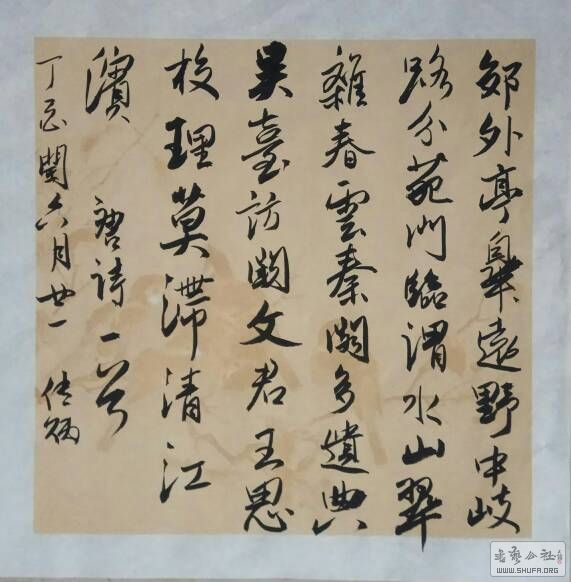 郊外亭皋遠野中岐
路分苑門臨渭水山翠
雜春雲秦閣多遺典
吳臺訪闕文君王思
校理莫滯清江
濆 唐詩一首
丁酉閏六月廿一
书艺公社
WWW.SHUFA.ORG